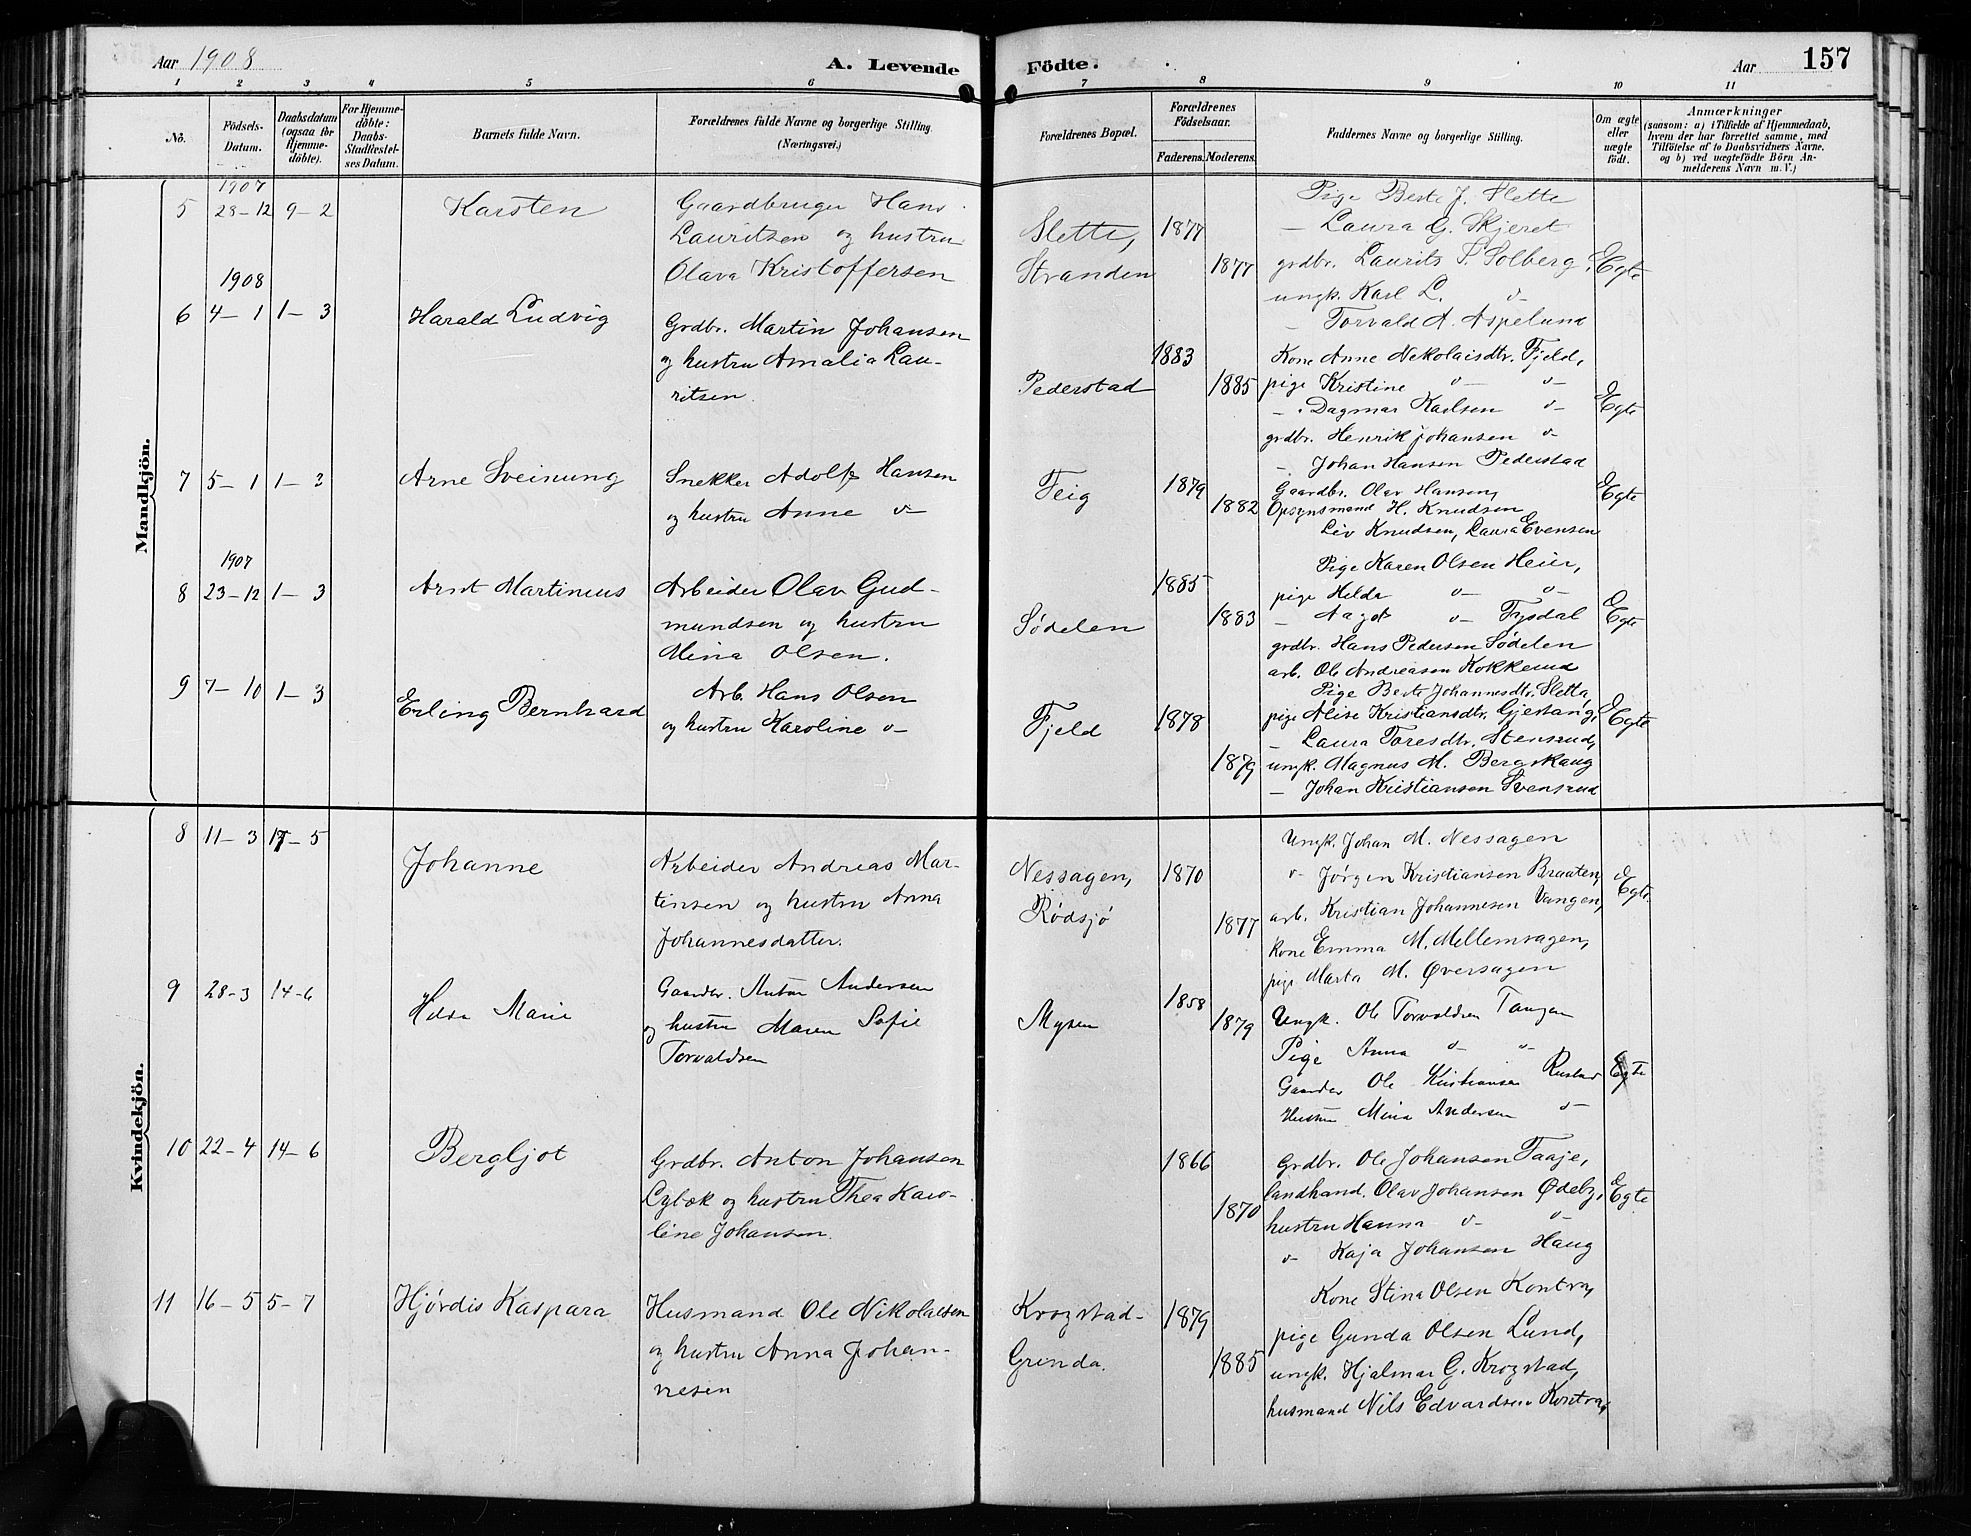 Aar 1908 A. Levende Födte. Aar 157
1 2 3 4 5 6 7 8 9 10 11
No. Födsels-Datum. Daabsdatum (ogsaa för Hjemme-döbte). For Hjemme-döbte: Daabs-Stadfæstel-ses Datum. Barnets fulde Navn. Forældrenes fulde Navne og borgerlige Stilling. (Næringsvei.) Forældrenes Bopæl. Forældrenes Födselsaar. Faderens. Moderens. Faddernes Navne og borgerlige Stilling. Om ægte eller uægte födt. Anmærkninger (saasom: a) i Tilfælde af Hjemmedaab, hvem der har forrettet samme, med Tilföielse af to Daabsvidners Navne, og b) ved uægtefödte Börn An-melderens Navn m. V.)
Mandkjön.
1907
5 28-12 9-2 Karsten
Gaardbruger Hans
Lauritsen og hustru
Olava Kristoffersen
Slette,
Stranden
1877
1877
Pige Berte J. Slette
— Laura G. Skjeret
grdbr. Laurits S. Solberg,
ungk. Karl L. -
— Torvald A. Aspelund
Egte
1908
6 4-1 1-3 Harald Ludvig
Grdbr. Martin Johansen
og hustru Amalia Lau-
ritsen.
Pederstad
1883
1885
Kone Anne Nikolaisdtr. Fjeld,
pige Kristine
— Dagmar Karlsen
grdbr. Henrik Johansen
— Johan Hansen Pederstad
Egte
7 5-1 1-3 Arne Sveinung
Snekker Adolf Hansen
og hustru Anne
Feig
1879
1882
Gaardbr. Olav Hansen,
Opsynsmand H. Knudsen
Liv Knudsen, Laura Evensen
Egte
1907
8 23-12 1-3 Arnt Martinius
Arbeider Olav Gud-
mundsen og hustru
Mina Olsen.
Södelen
1885
1883
Pige Karen Olsen Heier,
pige Hilda
— Aagot Fysdal
grdbr. Hans Pedersen Södelen
arb. Ole Andreasen Kokkerud
Egte
9 7-10 1-3 Erling Bernhard
Arb. Hans Olsen
og hustru Karoline
Fjeld
1878
1879
Pige Berte Johannesdtr. Sletta,
pige Alise Kristiansdtr. Gjestang,
— Laura Toresdtr. Stensrud,
ungk. Magnus M. Bergskaug
— Johan Kristiansen Svensrud
Egte
Kvindekjön.
8 11-3 17-5 Johanne
Arbeider Andreas Mar-
tinsen og hustru Anna
Johannesdatter.
Nessagen,
Rödsjö
1870
1877
Ungk. Johan M. Nessagen
Jörgen Kristiansen Braaten,
arb. Kristian Johannesen Vangen,
kone Emma M. Mellemsagen,
pige Marta M. Øversagen
Egte
9 28-3 14-6 Hilda Marie
Gaardbr. Anton Andersen
og hustru Maren Sofie
Torvaldsen
Mysen
1858
1879
Ungk. Ole Torvaldsen Tangen
Pige Anna
Gaardbr Ole Kristiansen Rustad
Hustru Mina Andersen
Egte
10 22-4 14-6 Bergljot
Grdbr. Anton Johansen
Lybæk og hustru Thea Karo-
line Johansen.
1866
1870
Grdbr. Ole Johansen Taaje,
landhand. Olav Johansen Ødeby,
hustru Hanna
Kaja Johansen Haug
Egte
11 16-5 5-7 Hjördis Kaspara
Husmand Ole Nikolaisen
og hustru Anna Johan-
nesen
Krogstad-
Grinda.
1879
1885
Kone Stina Olsen Kontra,
pige Gunda Olsen Lund,
ungk. Hjalmar G. Krogstad,
husmand Nils Edvardsen Kontra,